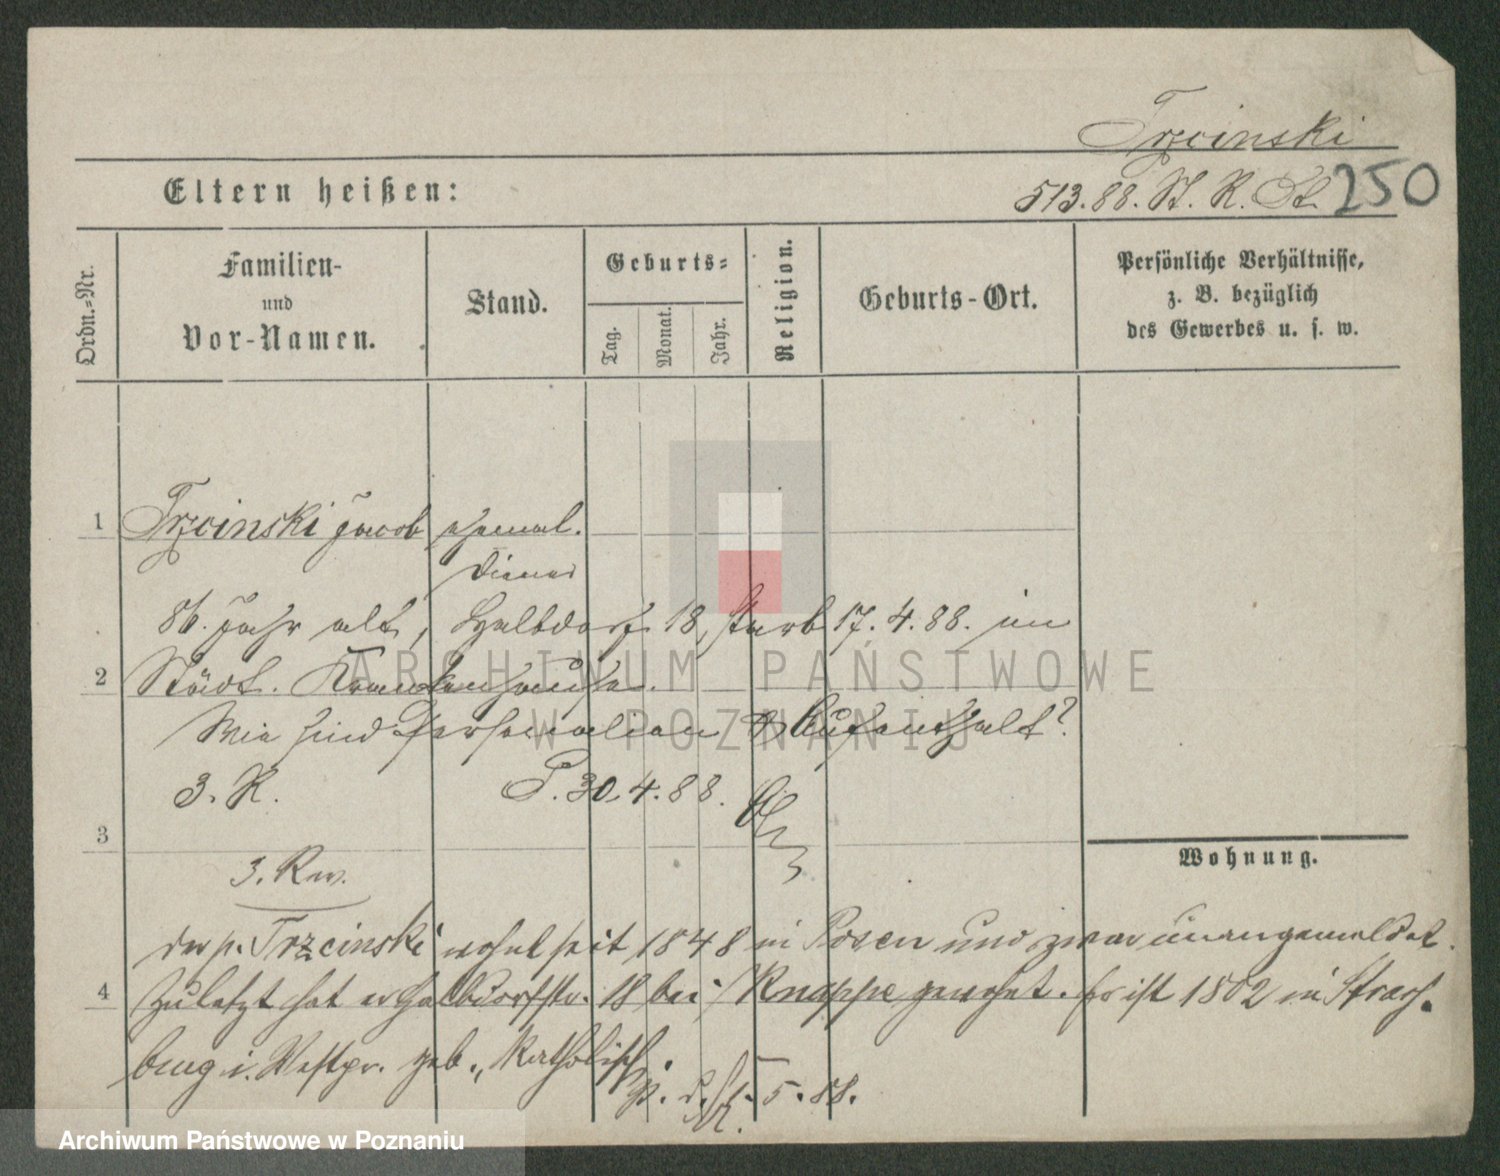 Trzcinski
513.88. St. R. St. 250
Eltern heißen:
Ordn.-Nr.
Familien-
und
Vor-Namen.
Stand.
Geburts-
Tag.
Monat.
Jahr.
Religion.
Geburts-Ort.
Persönliche Verhältnisse,
z. B. bezüglich
des Gewerbes u. s. w.
1 Trzcinski Jacob ehemal.
Diener
86. Jahr alt, Halbdorf 18, starb 17.4.88. im
2 Städt. Krankenhause.
Wie sind Personalien & Aufenthalt?
3. R. P. 30.4.88.
3
Wohnung.
3. Rev.
Der p. Trzcinski wohnt seit 1848 in Posen und zwar unangemeldet.
4 Zuletzt hat er Halbdorfstr. 18 bei Knappe gewohnt. Er ist 1802 in Stras-
burg i. Westpr. geb., Katholisch.
P. d. 1.5.88.
ARCHIWUM PAŃSTWOWE
W POZNANIU
Archiwum Państwowe w Poznaniu